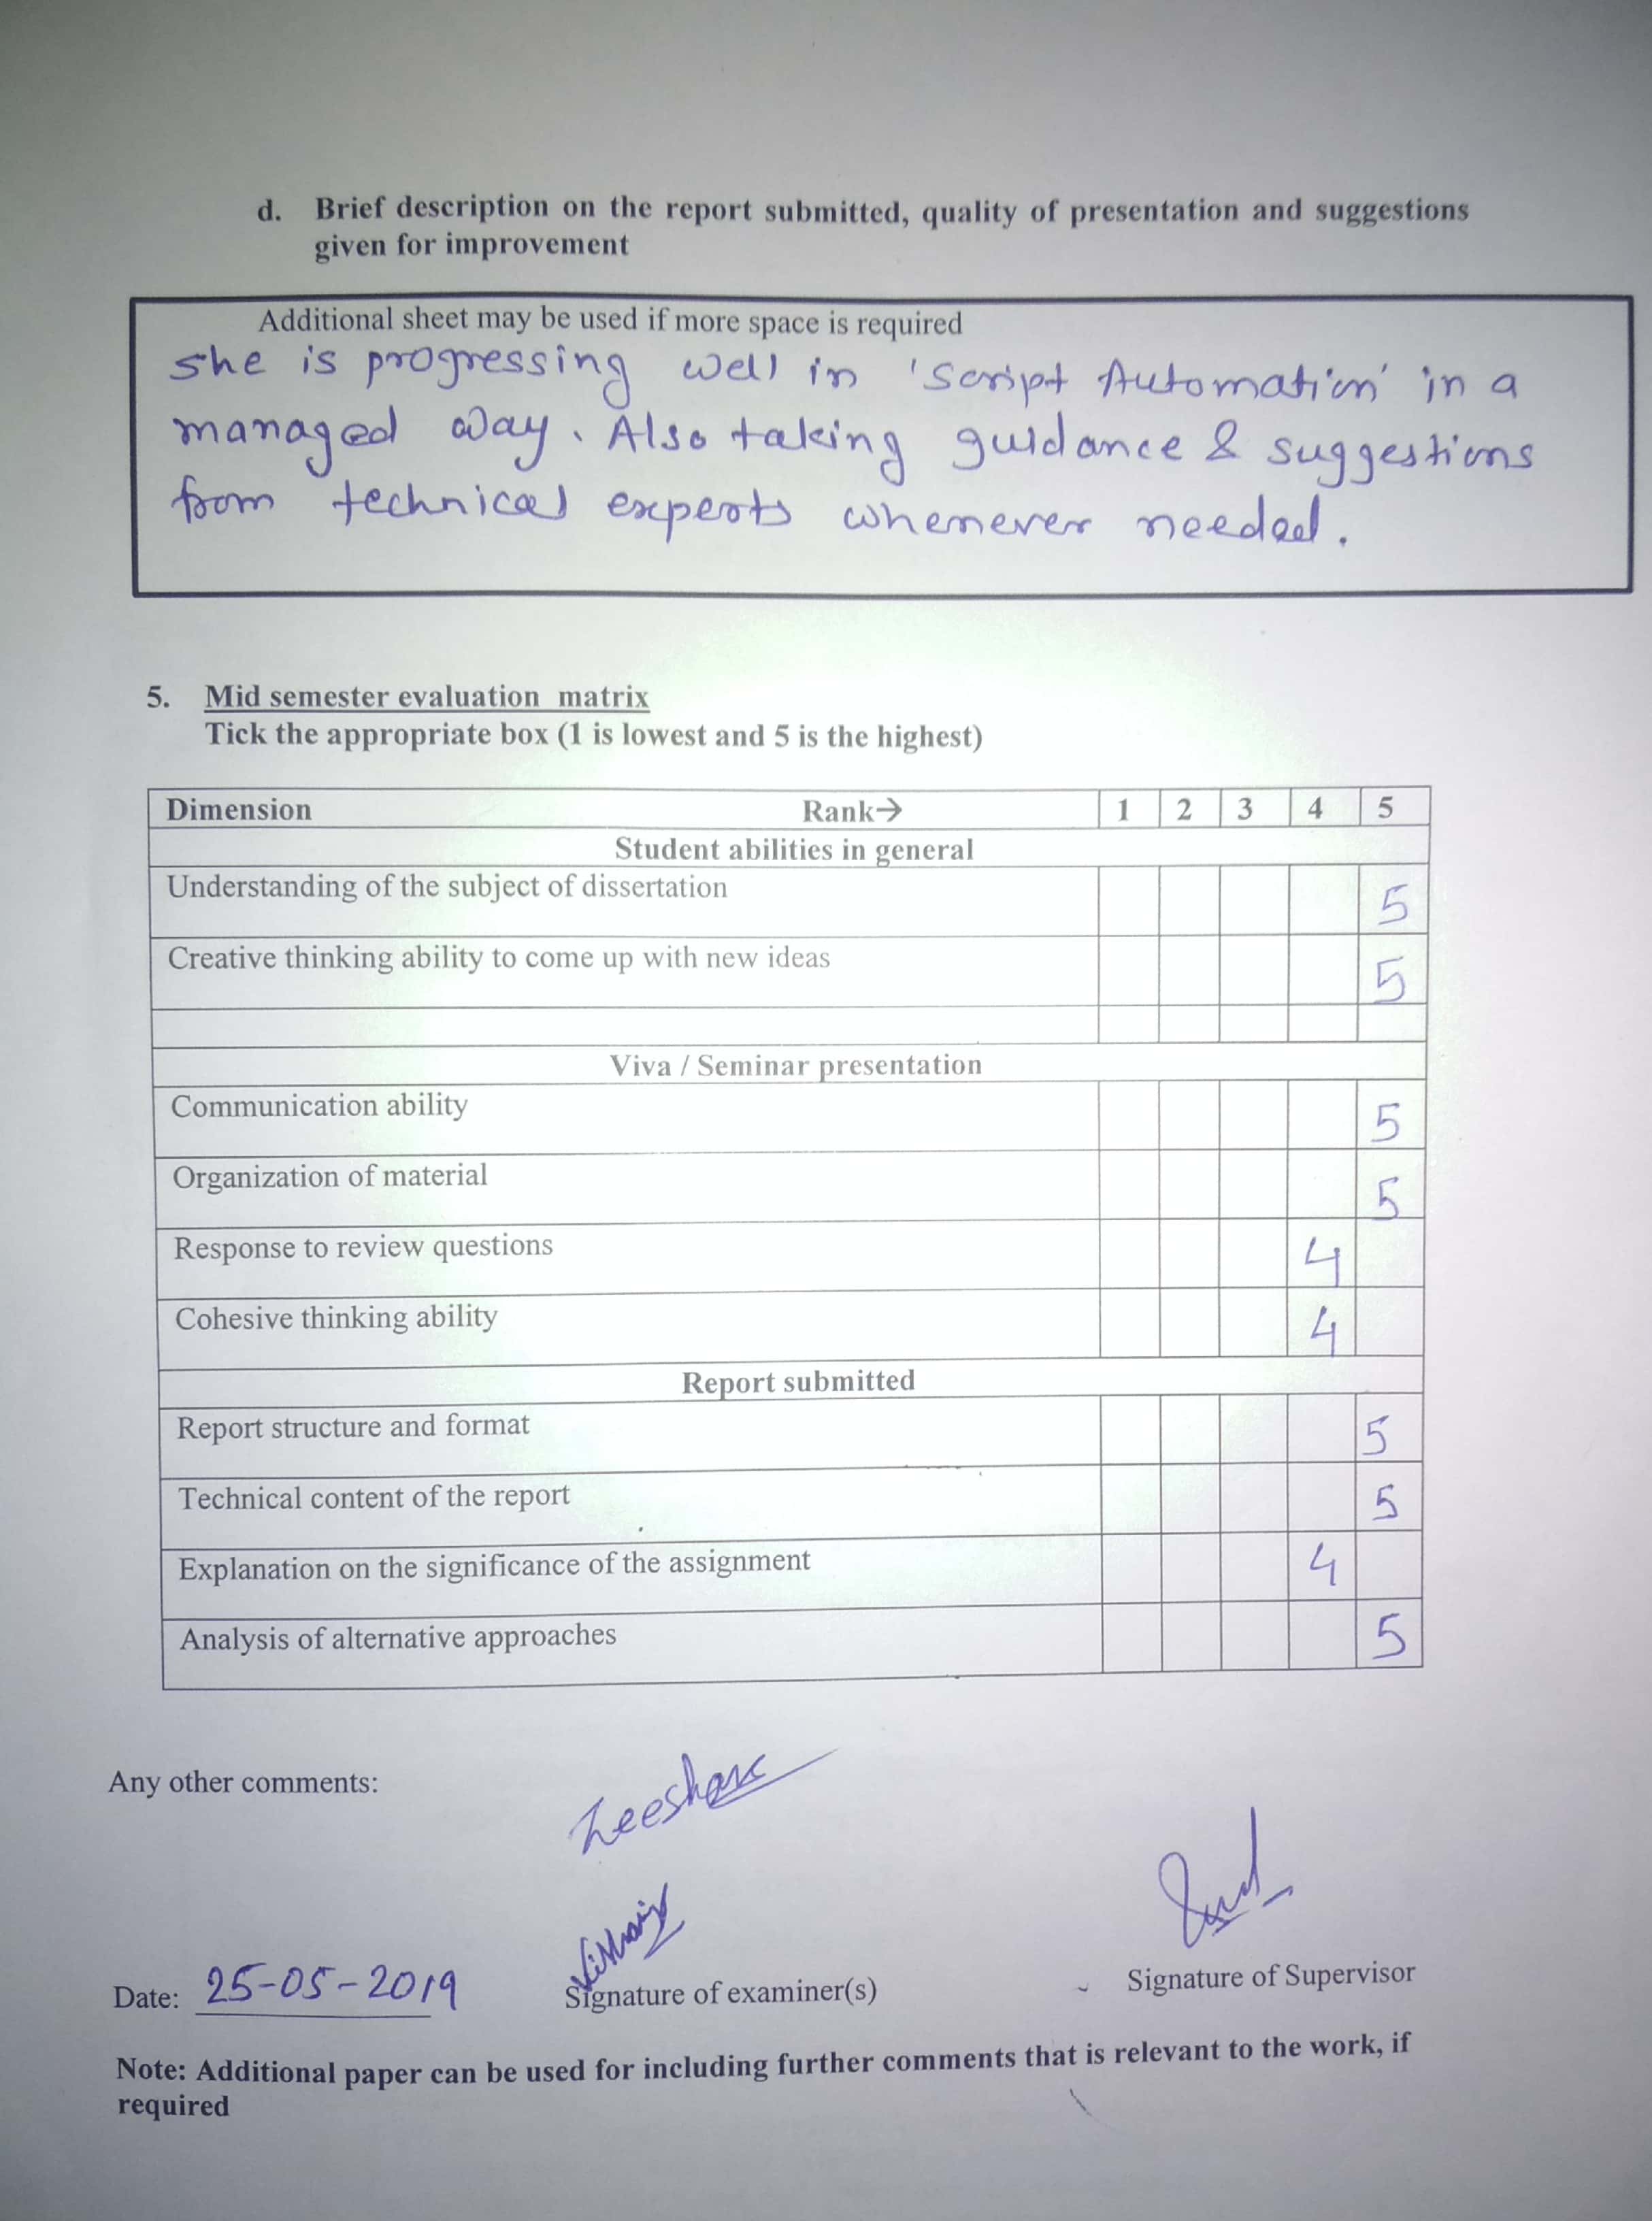 d. Brief description on the report submitted, quality of presentation and suggestions
given for improvement
Additional sheet may be used if more space is required
she is progressing well in 'Script Automation' in a
managed way. Also taking guidance & suggestions
from technical experts whenever needed.
5. Mid semester evaluation matrix
Tick the appropriate box (1 is lowest and 5 is the highest)
Dimension Rank→ 1 2 3 4 5
Student abilities in general
Understanding of the subject of dissertation 5
Creative thinking ability to come up with new ideas 5
Viva / Seminar presentation
Communication ability 5
Organization of material 5
Response to review questions 4
Cohesive thinking ability 4
Report submitted
Report structure and format 5
Technical content of the report 5
Explanation on the significance of the assignment 4
Analysis of alternative approaches 5
Any other comments:
Date: 25-05-2019 Signature of examiner(s) Signature of Supervisor
Note: Additional paper can be used for including further comments that is relevant to the work, if
required